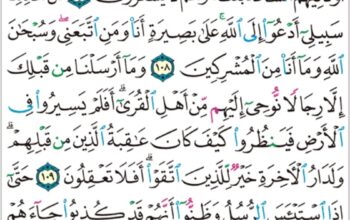 سَبِيلِىٓ أَدْعُوٓا۟ إِلَى ٱللَّهِ عَلَىٰ بَصِيرَةٍ أَنَا۠ وَمَنِ ٱتَّبَعَنِى وَسُبْحَٰنَ
ٱللَّهِ وَمَآ أَنَا۠ مِنَ ٱلْمُشْرِكِينَ ١٠٨ وَمَآ أَرْسَلْنَا مِن قَبْلِكَ
إِلَّا رِجَالًا نُّوحِىٓ إِلَيْهِم مِّنْ أَهْلِ ٱلْقُرَىٰٓ أَفَلَمْ يَسِيرُوا۟ فِى
ٱلْأَرْضِ فَيَنظُرُوا۟ كَيْفَ كَانَ عَٰقِبَةُ ٱلَّذِينَ مِن قَبْلِهِمْ
وَلَدَارُ ٱلْءَاخِرَةِ خَيْرٌ لِّلَّذِينَ ٱتَّقَوْا۟ أَفَلَا تَعْقِلُونَ ١٠٩ حَتَّىٰٓ
إِذَا ٱسْتَيْـَٔسَ ٱلرُّسُلُ وَظَنُّوٓا۟ أَنَّهُمْ قَدْ كُذِبُوا۟ جَآءَهُمْ